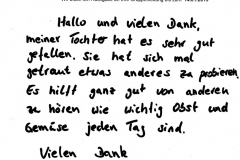 Hallo und vielen Dank,
meiner Tochter hat es sehr gut
gefallen. Sie hat sich mal
getraut etwas anderes zu probieren.
Es hilft ganz gut von anderen
zu hören wie wichtig Obst und
Gemüse jeden Tag sind.
Vielen Dank